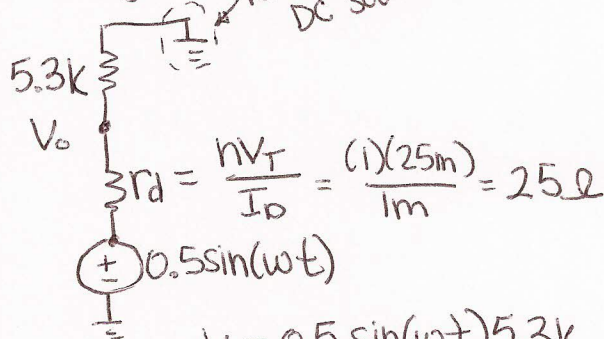 DC
5.3k
Vo
rd = nVT / ID = (1)(25m) / 1m = 25Ω
+
-
0.5sin(ωt)
0.5 sin(ωt)5.3k